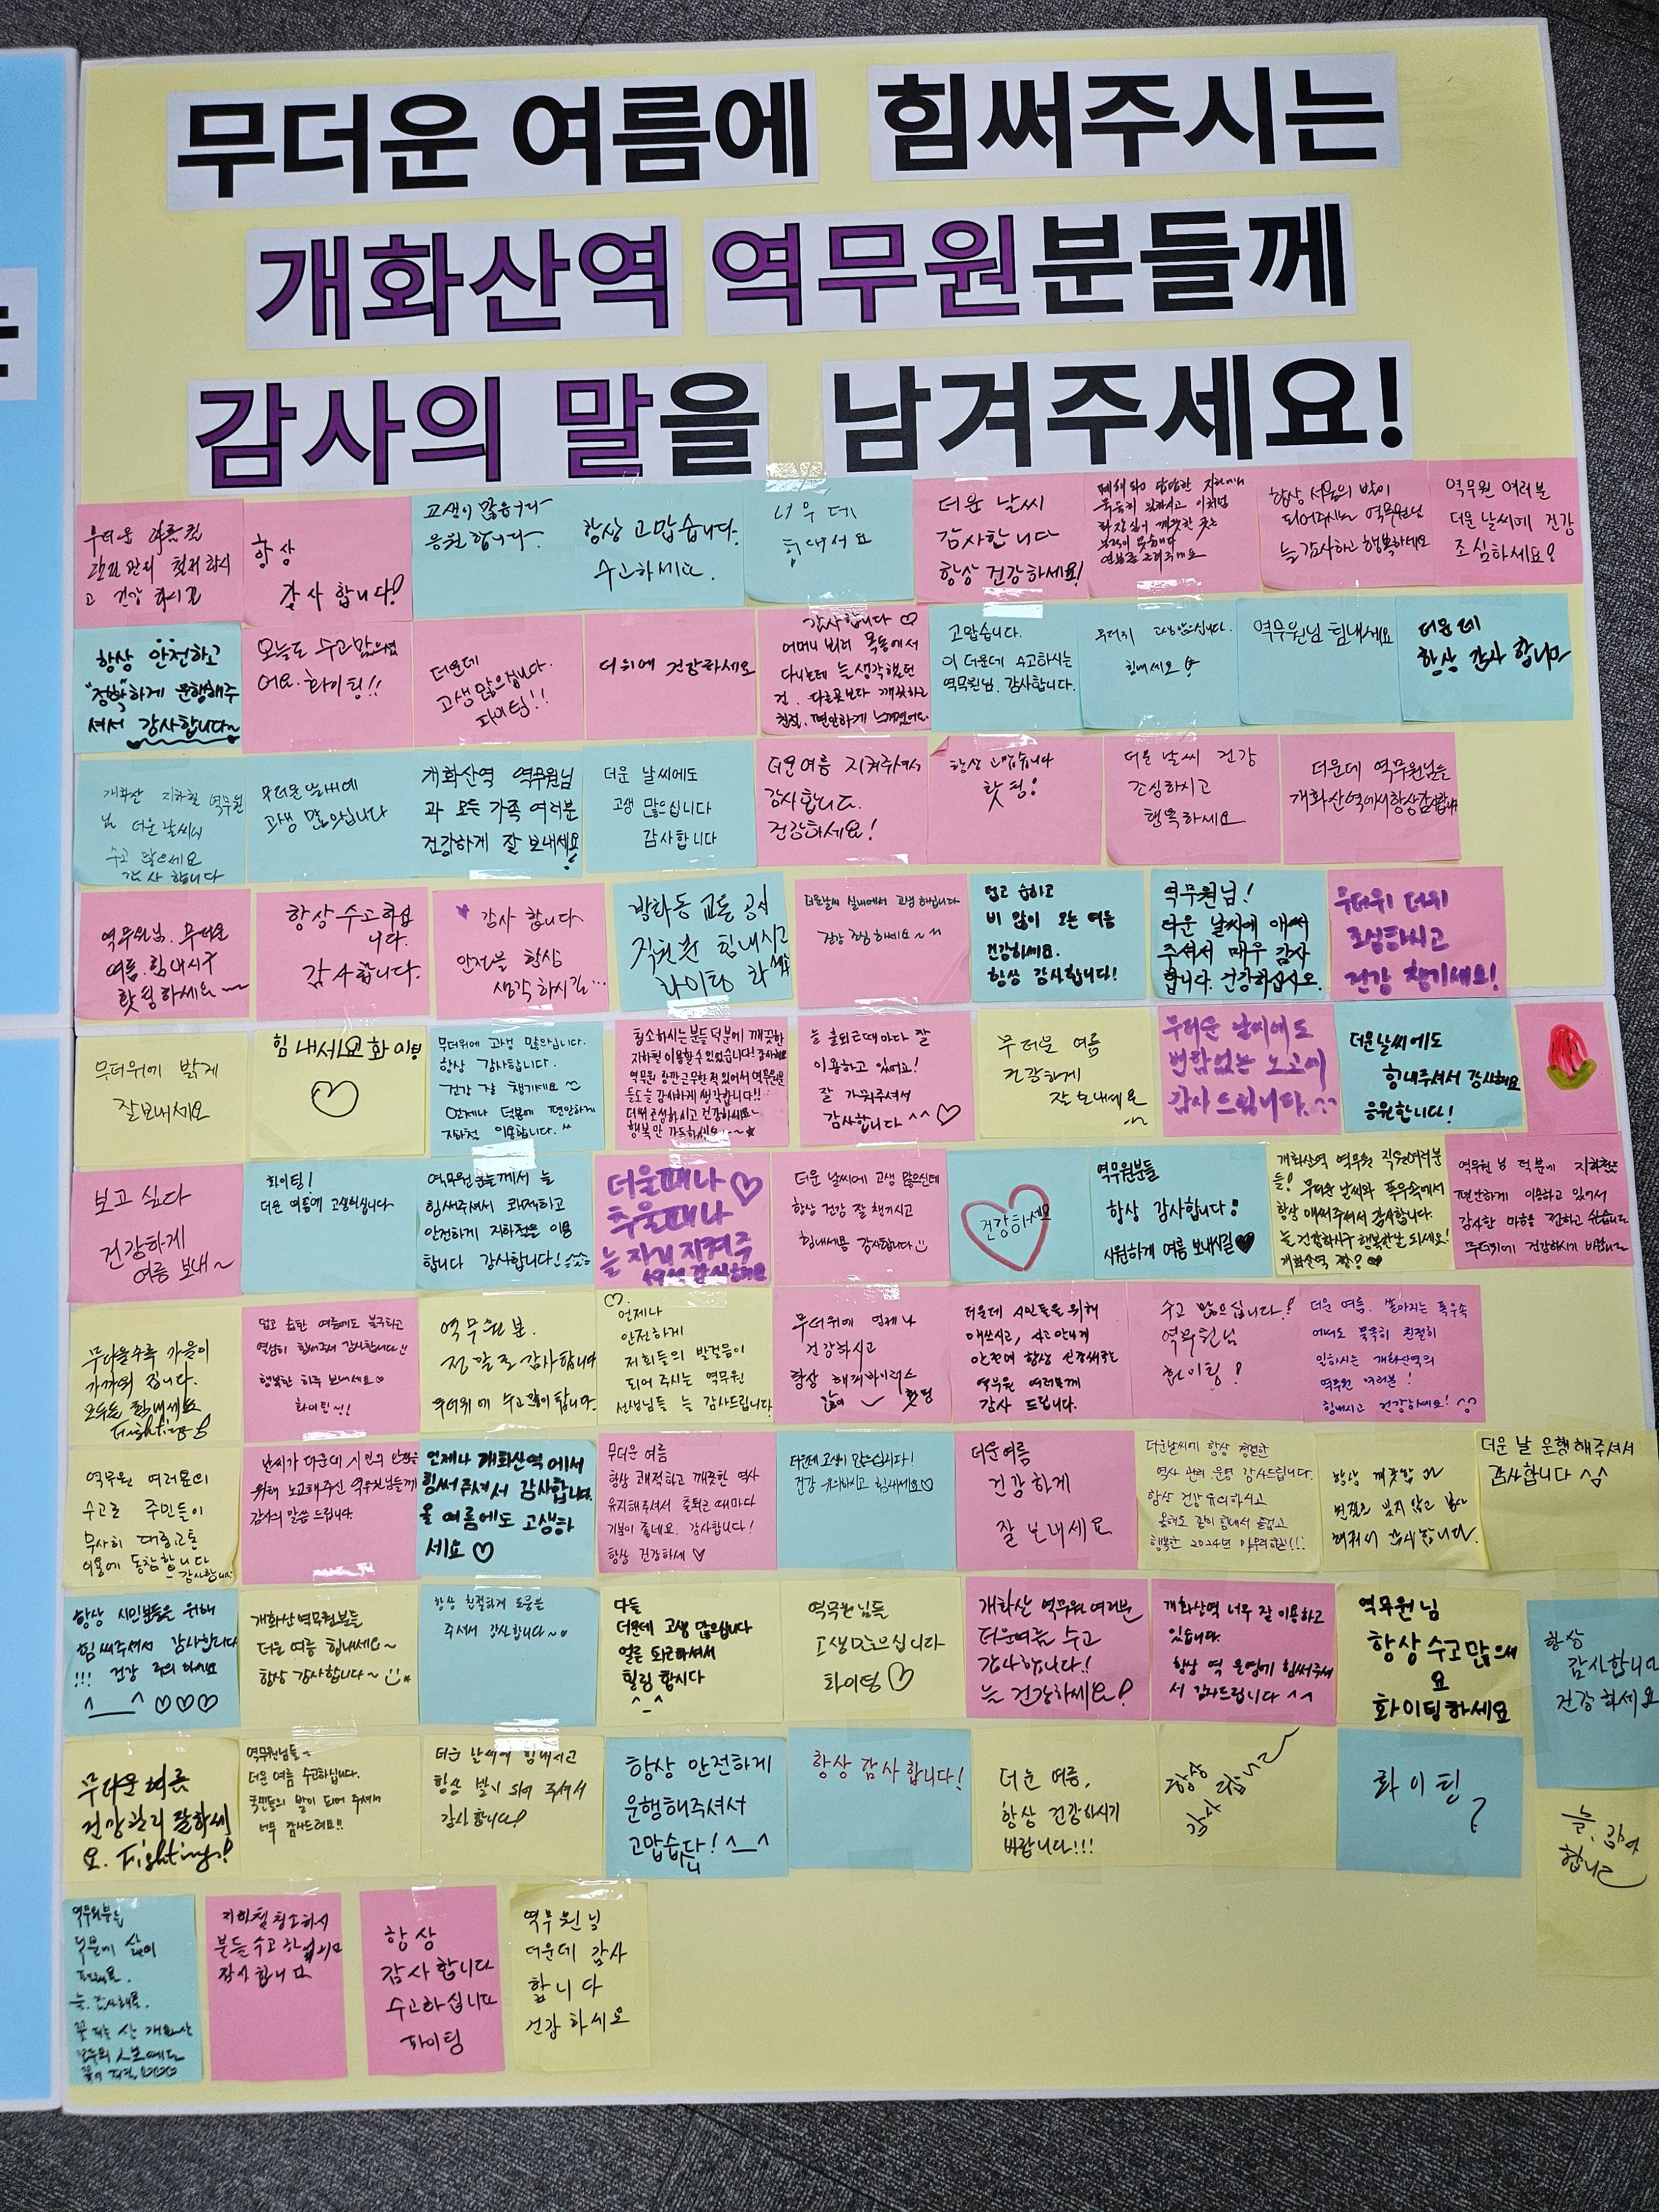 무더운 여름에 힘써주시는
개화산역 역무원분들께
감사의 말을 남겨주세요!
무더운 여름철
고 건강 하시길
항상
감사 합니다!
고생이 많습니다~
응원 합니다~
항상 고맙습니다.
수고하세요.
더운 날씨
감사합니다
항상 건강하세요!
항상 서울의 발이
되어주시는 역무원님
늘 감사하고 행복하세요
역무원 여러분
더운 날씨에 건강
조심하세요!
항상 안전하고
"정확"하게 운행해주
셔서 감사합니다~
오늘도 수고 많으셨
어요. 화이팅!!
더운데
고생 많으십니다.
파이팅!!
더위에 건강하세요
감사합니다 ♡
어머니 뵈러 목동에서
다니는데 늘 생각했던
건, 다른곳보다 깨끗하고
친절, 편안하게 느껴졌어요.
고맙습니다.
이 더운데 수고하시는
역무원님. 감사합니다.
무더위 고생 많으십니다.
힘내세요
역무원님 힘내세요
더운데
항상 감사 합니다
개화산 지하철 역무원
님 더운 날씨에
수고 많으세요
감사 합니다
무더운 날씨에
고생 많으십니다
개화산역 역무원님
과 모든 가족 여러분
건강하게 잘 보내세요!
더운 날씨에도
고생 많으십니다
감사합니다
더운여름 지켜주셔서
감사합니다.
건강하세요!
항상 고맙습니다
핫팅!
더운 날씨 건강
조심하시고
행복하세요
더운데 역무원님들
개화산역에서항상감사합니다
역무원님. 무더운
여름. 힘내시구
핫팅하세요~
항상수고하십
니다.
감사합니다.
감사 합니다
안전을 항상
생각 하시길...
방화동 교통 공사
직원분 힘내시고
화이팅 하세요
더운날씨 실내에서 고생 하십니다
건강 조심 하세요~~
덥고 습하고
비 많이 오는 여름
건강하세요.
항상 감사합니다!
역무원님!
더운 날씨에 애써
주셔서 매우 감사
합니다. 건강하십시오.
무더위 더위
조심하시고
건강 챙기세요!
무더위에 밝게
잘보내세요
힘 내세요 화이팅
♡
무더위에 고생 많으십니다.
항상 감사합니다.
건강 잘 챙기세요
언제나 덕분에 편안하게
지하철 이용합니다.
청소하시는 분들 덕분에 깨끗한
지하철 이용할수 있었습니다! 감사해요
늘 출퇴근때마다 잘
이용하고 있어요!
잘 가꿔주셔서
감사합니다 ^^ ♡
무더운 여름
건강하게
잘 보내세요
무더운 날씨에도
변함없는 노고에
감사드립니다.^^
더운날씨에도
힘내주셔서 감사해요
응원합니다!
보고 싶다
건강하게
여름 보내~
화이팅!
더운 여름에 고생하십니다
역무원분들께서 늘
힘써주셔서 쾌적하고
안전하게 지하철을 이용
합니다 감사합니다!
더울때나 ♡
추울때나
늘 자리 지켜주
셔서 감사해요
더운 날씨에 고생 많으신데
항상 건강 잘 챙기시고
힘내세용 감사합니다
건강하세요
역무원분들
항상 감사합니다!
시원하게 여름 보내시길♥
개화산역 역무원 직원여러분
들! 무더운 날씨와 폭우속에서
항상 애써주셔서 감사합니다.
늘 건강하시구 행복한날 되세요!
개화산역 짱!
역무원 님 덕분에 지하철을
편안하게 이용하고 있어서
감사한 마음을 전하고 싶습니다
무더위에 건강하시기 바랍니다
무더울수록 가을이
가까워 집니다.
모두들 힘내세요
Fighting
덥고 습한 여름에도 불구하고
열심히 힘써주셔서 감사합니다
행복한 하루 보내세요
화이팅!
역무원분.
정말로 감사합니다
무더위에 수고많이 합니다.
♡
언제나
안전하게
저희들의 발걸음이
되어 주시는 역무원
선생님들 늘 감사드립니다
무더위에 언제나
건강하시고
항상 해피바이러스
더운데 시민들을 위해
애쓰시고, 사고 안나게
안전에 항상 신경써주는
역무원 여러분께
감사 드립니다.
수고 많으십니다!
역무원님
화이팅!
더운 여름. 쏟아지는 폭우속
에서도 묵묵히 친절히
임하시는 개화산역의
역무원 여러분!
힘내시고 건강하세요! ^^
역무원 여러분의
수고로 주민들이
무사히 대중교통
이용에 동참합니다
감사합니다
날씨가 더운데 시민의 안전을
위해 노고해주신 역무원님들께
감사의 말씀 드립니다.
언제나 개화산역에서
힘써주셔서 감사합니다.
올 여름에도 고생하
세요 ♡
무더운 여름
항상 쾌적하고 깨끗한 역사
유지해주셔서 출퇴근 때마다
기분이 좋네요. 감사합니다!
항상 건강하세 ♡
더운데 고생이 많으십니다!
건강 유의하시고 힘내세요♡
더운여름
건강 하게
잘 보내세요
더운날씨에 항상 청결한
역사 관리 운영 감사드립니다.
항상 건강 유의하시고
올해도 같이 힘내서 즐겁고
행복한 2024년 마무리해요!!!
더운 날 운행해주셔서
감사합니다 ^^
항상 시민분들을 위해
힘써주셔서 감사합니다
!!! 건강 유의 하세요
^__^ ♡♡♡
개화산역무원분들
더운 여름 힘내세요~
항상 감사합니다~
항상 친절하게 도움을
주셔서 감사합니다~
다들
더운데 고생 많으십니다
얼른 퇴근하셔서
힐링 합시다
^_^
역무원님들
고생많으십니다
화이팅♡
개화산 역무원 여러분
더운여름 수고
감사합니다!
늘 건강하세요!
개화산역 너무 잘 이용하고
있습니다.
항상 역 운영에 힘써주셔
서 감사드립니다 ^^
역무원님
항상 수고많으세
요
화이팅하세요
항상
감사합니다
건강 하세요
무더운 여름
건강관리 잘하세
요. Fighting!
역무원님들~
더운 여름 수고하십니다.
국민들의 발이 되어 주셔서
너무 감사드려요!!
더운 날씨에 힘내시고
항상 발이 되어 주셔서
감사합니다!
항상 안전하게
운행해주셔서
고맙습니다! ^__^
항상 감사 합니다!
더운 여름,
항상 건강하시기
바랍니다!!!
항상
감사합니다
화 이 팅
늘, 감사
합니다
역무원분들
늘, 감사해요.
지하철청소하시
분들 수고 하십니다
감사 합니다
항상
감사합니다
수고하십니다
파이팅
역무원님
더운데 감사
합니다
건강하세요